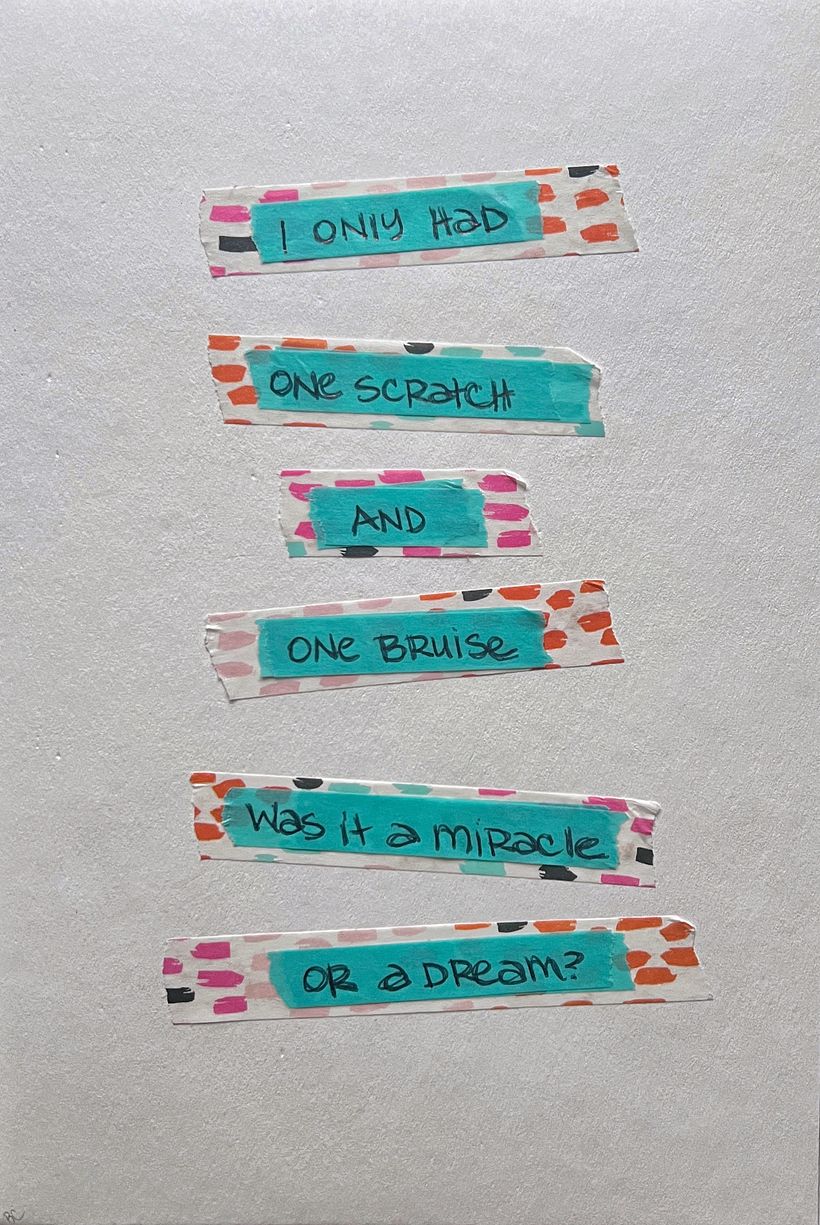 I ONLY HaD
ONe SCRatCH
AND
ONe BRuiSe
Was it a MiRacle
OR a DReam?
RC